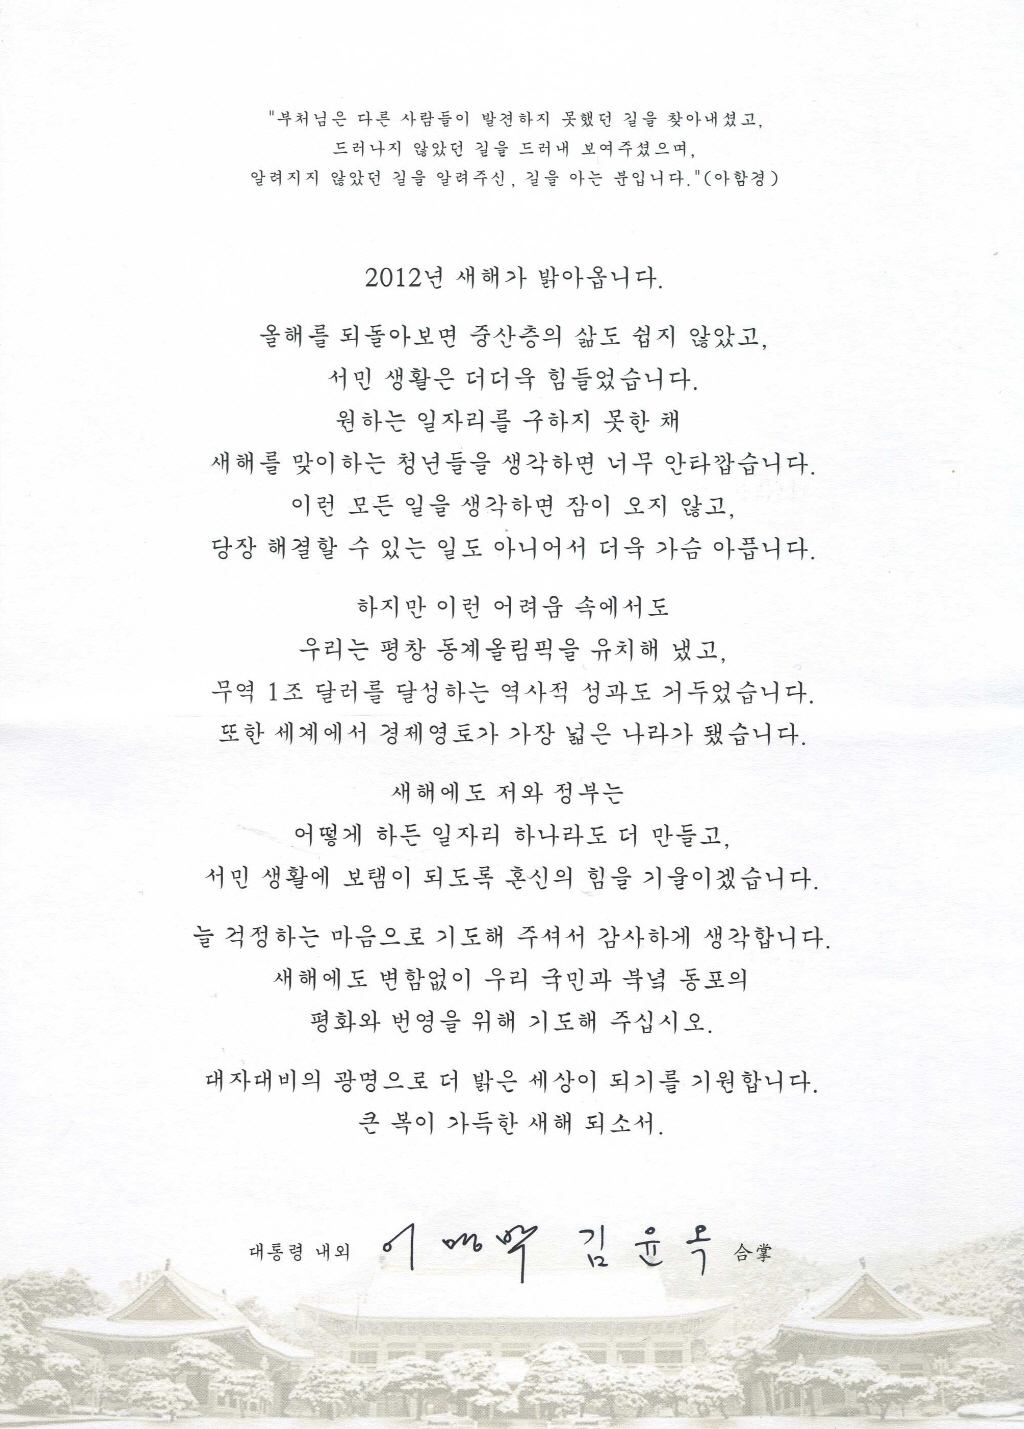 "부처님은 다른 사람들이 발견하지 못했던 길을 찾아내셨고,
드러나지 않았던 길을 드러내 보여주셨으며,
알려지지 않았던 길을 알려주신, 길을 아는 분입니다."(아함경)
2012년 새해가 밝아옵니다.
올해를 되돌아보면 중산층의 삶도 쉽지 않았고,
서민 생활은 더더욱 힘들었습니다.
원하는 일자리를 구하지 못한 채
새해를 맞이하는 청년들을 생각하면 너무 안타깝습니다.
이런 모든 일을 생각하면 잠이 오지 않고,
당장 해결할 수 있는 일도 아니어서 더욱 가슴 아픕니다.
하지만 이런 어려움 속에서도
우리는 평창 동계올림픽을 유치해 냈고,
무역 1조 달러를 달성하는 역사적 성과도 거두었습니다.
또한 세계에서 경제영토가 가장 넓은 나라가 됐습니다.
새해에도 저와 정부는
어떻게 하든 일자리 하나라도 더 만들고,
서민 생활에 보탬이 되도록 혼신의 힘을 기울이겠습니다.
늘 걱정하는 마음으로 기도해 주셔서 감사하게 생각합니다.
새해에도 변함없이 우리 국민과 북녘 동포의
평화와 번영을 위해 기도해 주십시오.
대자대비의 광명으로 더 밝은 세상이 되기를 기원합니다.
큰 복이 가득한 새해 되소서.
대통령 내외 이명박 김윤옥 合掌